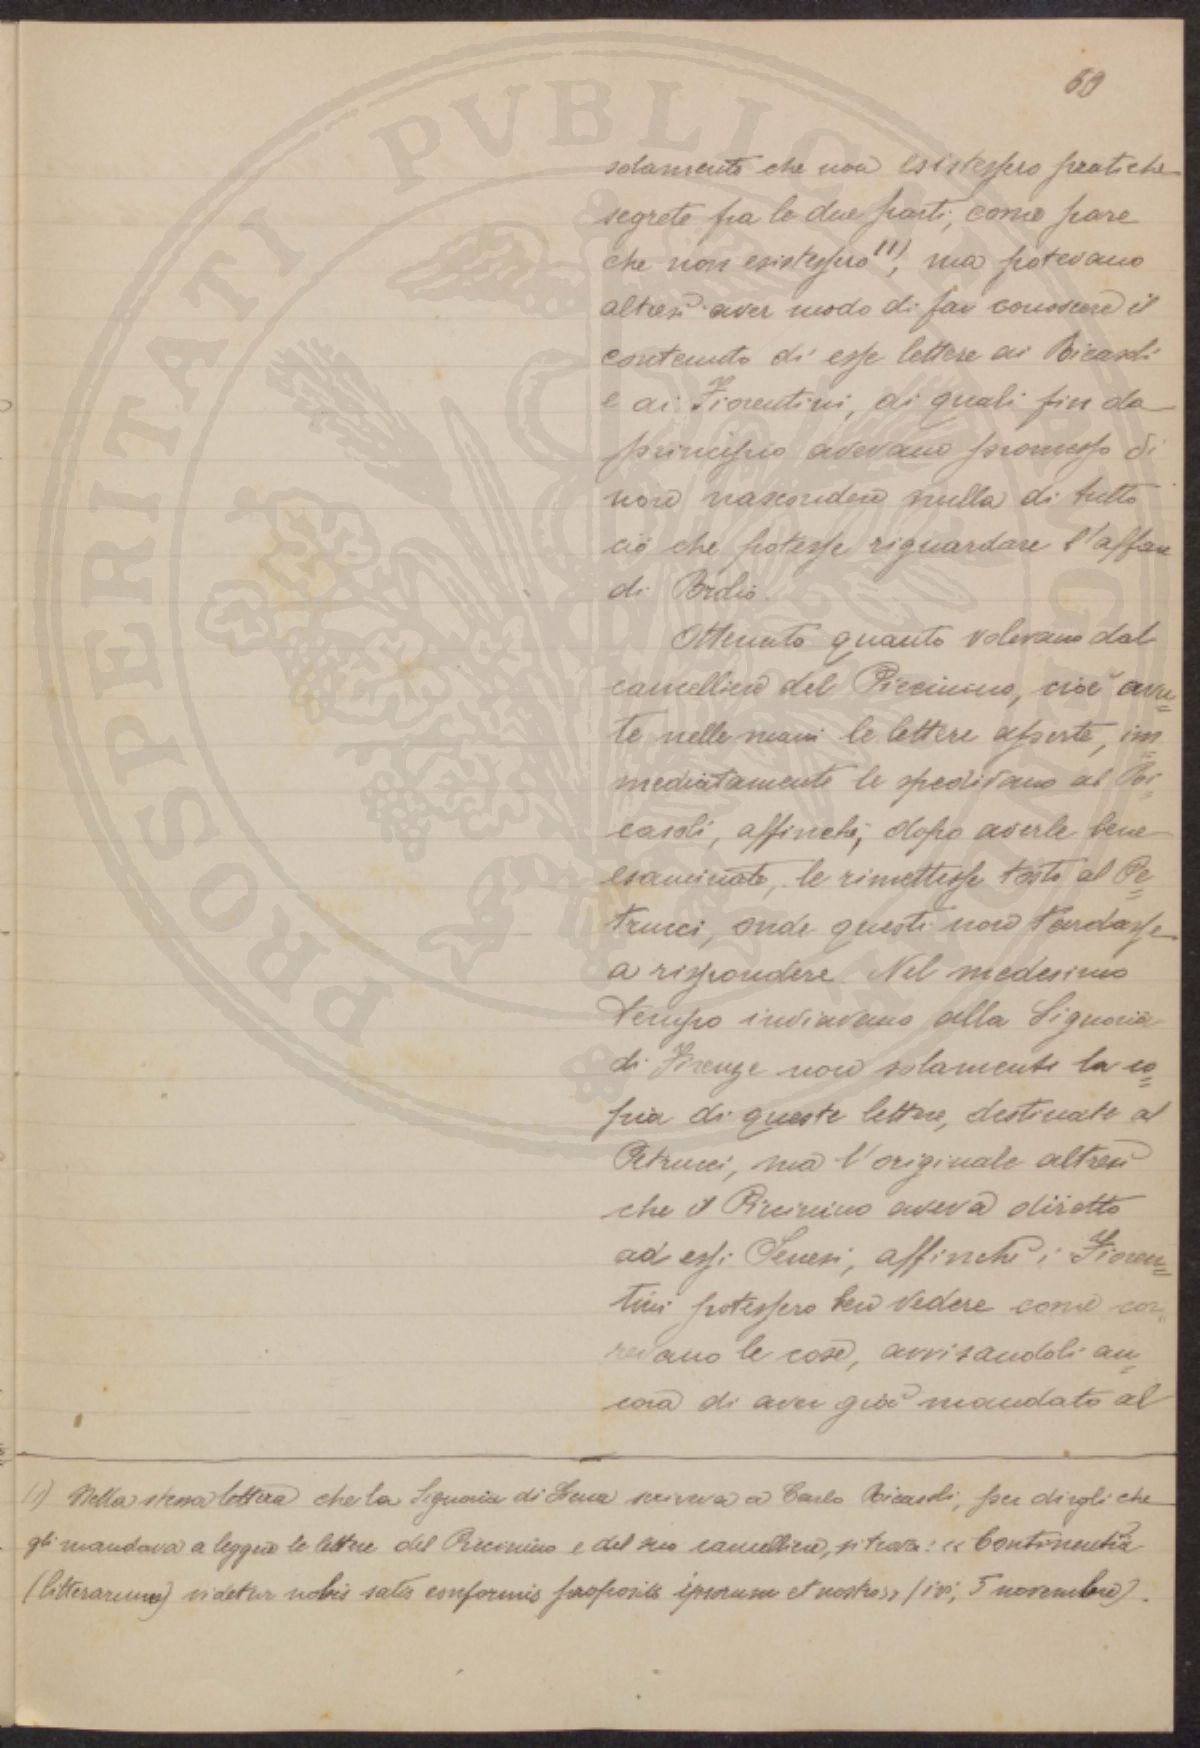 69
solamente che non esistessero pratiche
segrete fra le due parti, come pare
che non esistessero 1), ma potevano
altresì aver modo di far conoscere il
contenuto di esse lettere ai Ricasoli
e ai Fiorentini, ai quali fin da
principio avevano promesso di
non nascondere nulla di tutto
ciò che potesse riguardare l'affare
di Brolio.
Ottenuto quanto volevano dal
cancelliere del Piccinino, cioè avu=
te nelle mani le lettere aperte, im=
mediatamente le spedivano al Ri=
casoli, affinchè, dopo averle bene
esaminate, le rimettesse tosto al Pe=
trucci, onde questi non tardasse
a rispondere. Nel medesimo
tempo inviavano alla Signoria
di Firenze non solamente la co=
pia di queste lettere, destinate al
Petrucci, ma l'originale altresì
che il Piccinino aveva diretto
ad essi Senesi, affinchè i Fioren=
tini potessero ben vedere come cor=
revano le cose, avvisandoli an=
cora di aver già mandato al
1) Nella stessa lettera che la Signoria di Siena scriveva a Carlo Ricasoli, per dirgli che
gli mandava a leggere le lettere del Piccinino e del suo cancelliere, si trova: « Continentia
(litterarum) videtur nobis satis conformis propositis ipsorum et nostro » (ivi, 5 novembre).
PROSPERITATI PVBLICAE AVGENDAE